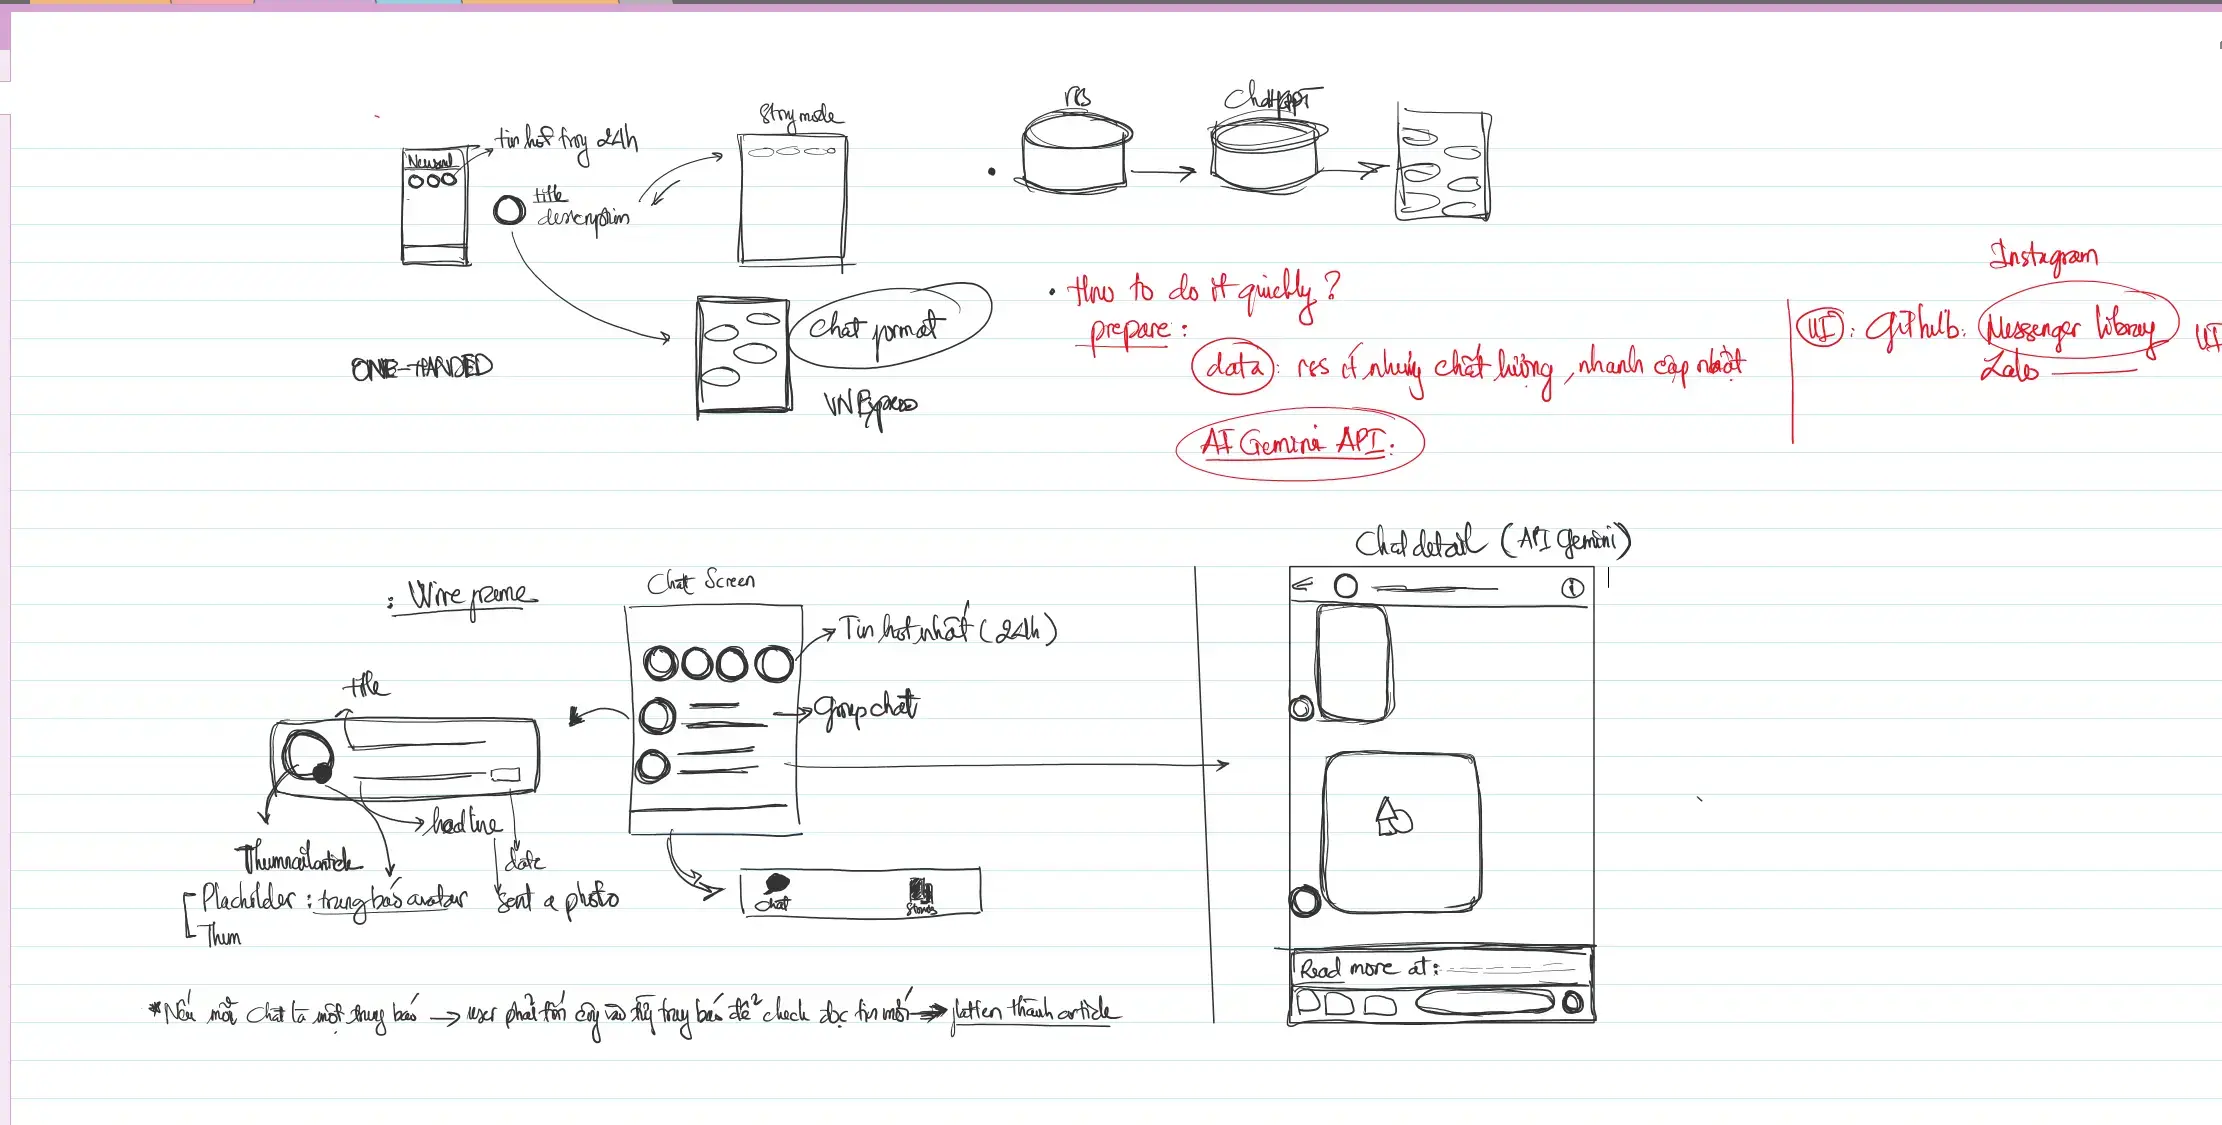 Story mode
tin hot trong 24h
title
description
ONE-HANDED
chat format
VN Express
rss
ChatGPT
• How to do it quickly?
prepare:
data: rss ít nhưng chất lượng, nhanh cập nhật
AI Gemini API:
Instagram
UI: Github: Messenger library
Zalo
UI
: Wireframe
Chat Screen
Tin hot nhất (24h)
Group chat
title
headline
Thumnail article
date
Placholder: trang báo avatar
sent a photo
Thum
chat
Stories
*Nếu mỗi chat là một trang báo → user phải tốn công vào từng trang báo để check đọc tin mới → flatten thành article
Chat detail (API Gemini)
Read more at: